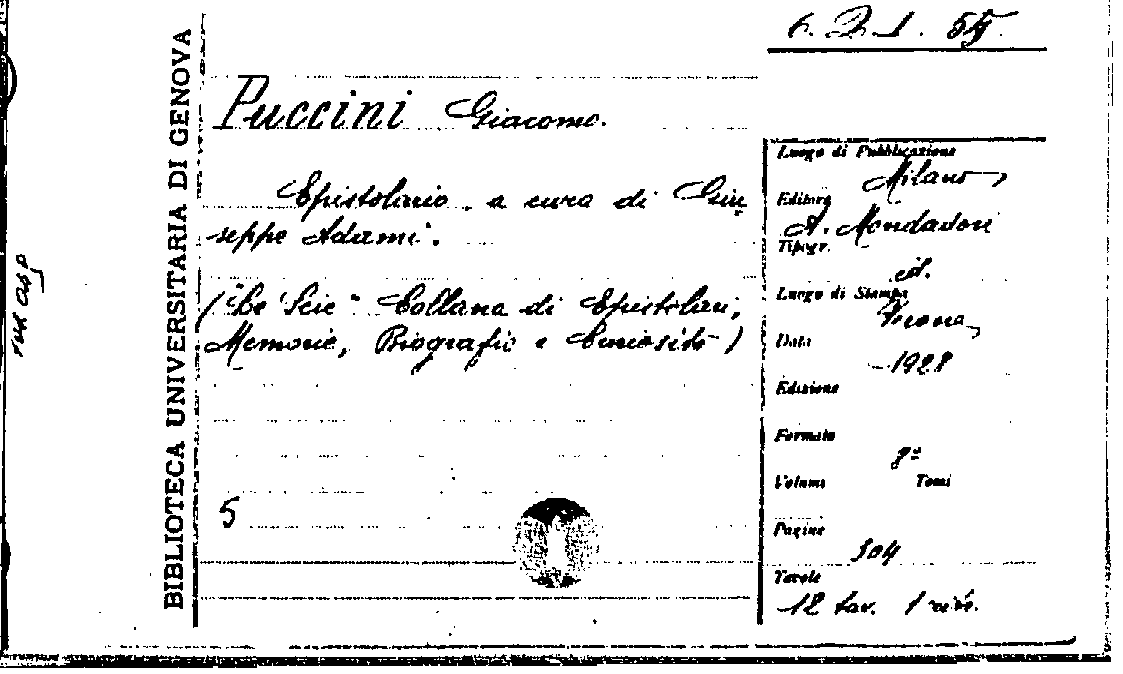 6. 2. I. 55.
BIBLIOTECA UNIVERSITARIA DI GENOVA
Puccini Giacomo.
Epistolario. a cura di Giu
seppe Adami.
("Le Scie" Collana di Epistolari,
Memorie, Biografie e Curiosità)
5
Luogo di Pubblicazione
Milano,
Editore
A. Mondadori
Tipogr.
id.
Luogo di Stampa
Verona,
Data
1928
Edizione
Formato
8º
Volumi Tomi
Pagine
304
Tavole
12 tav. 1 ritr.